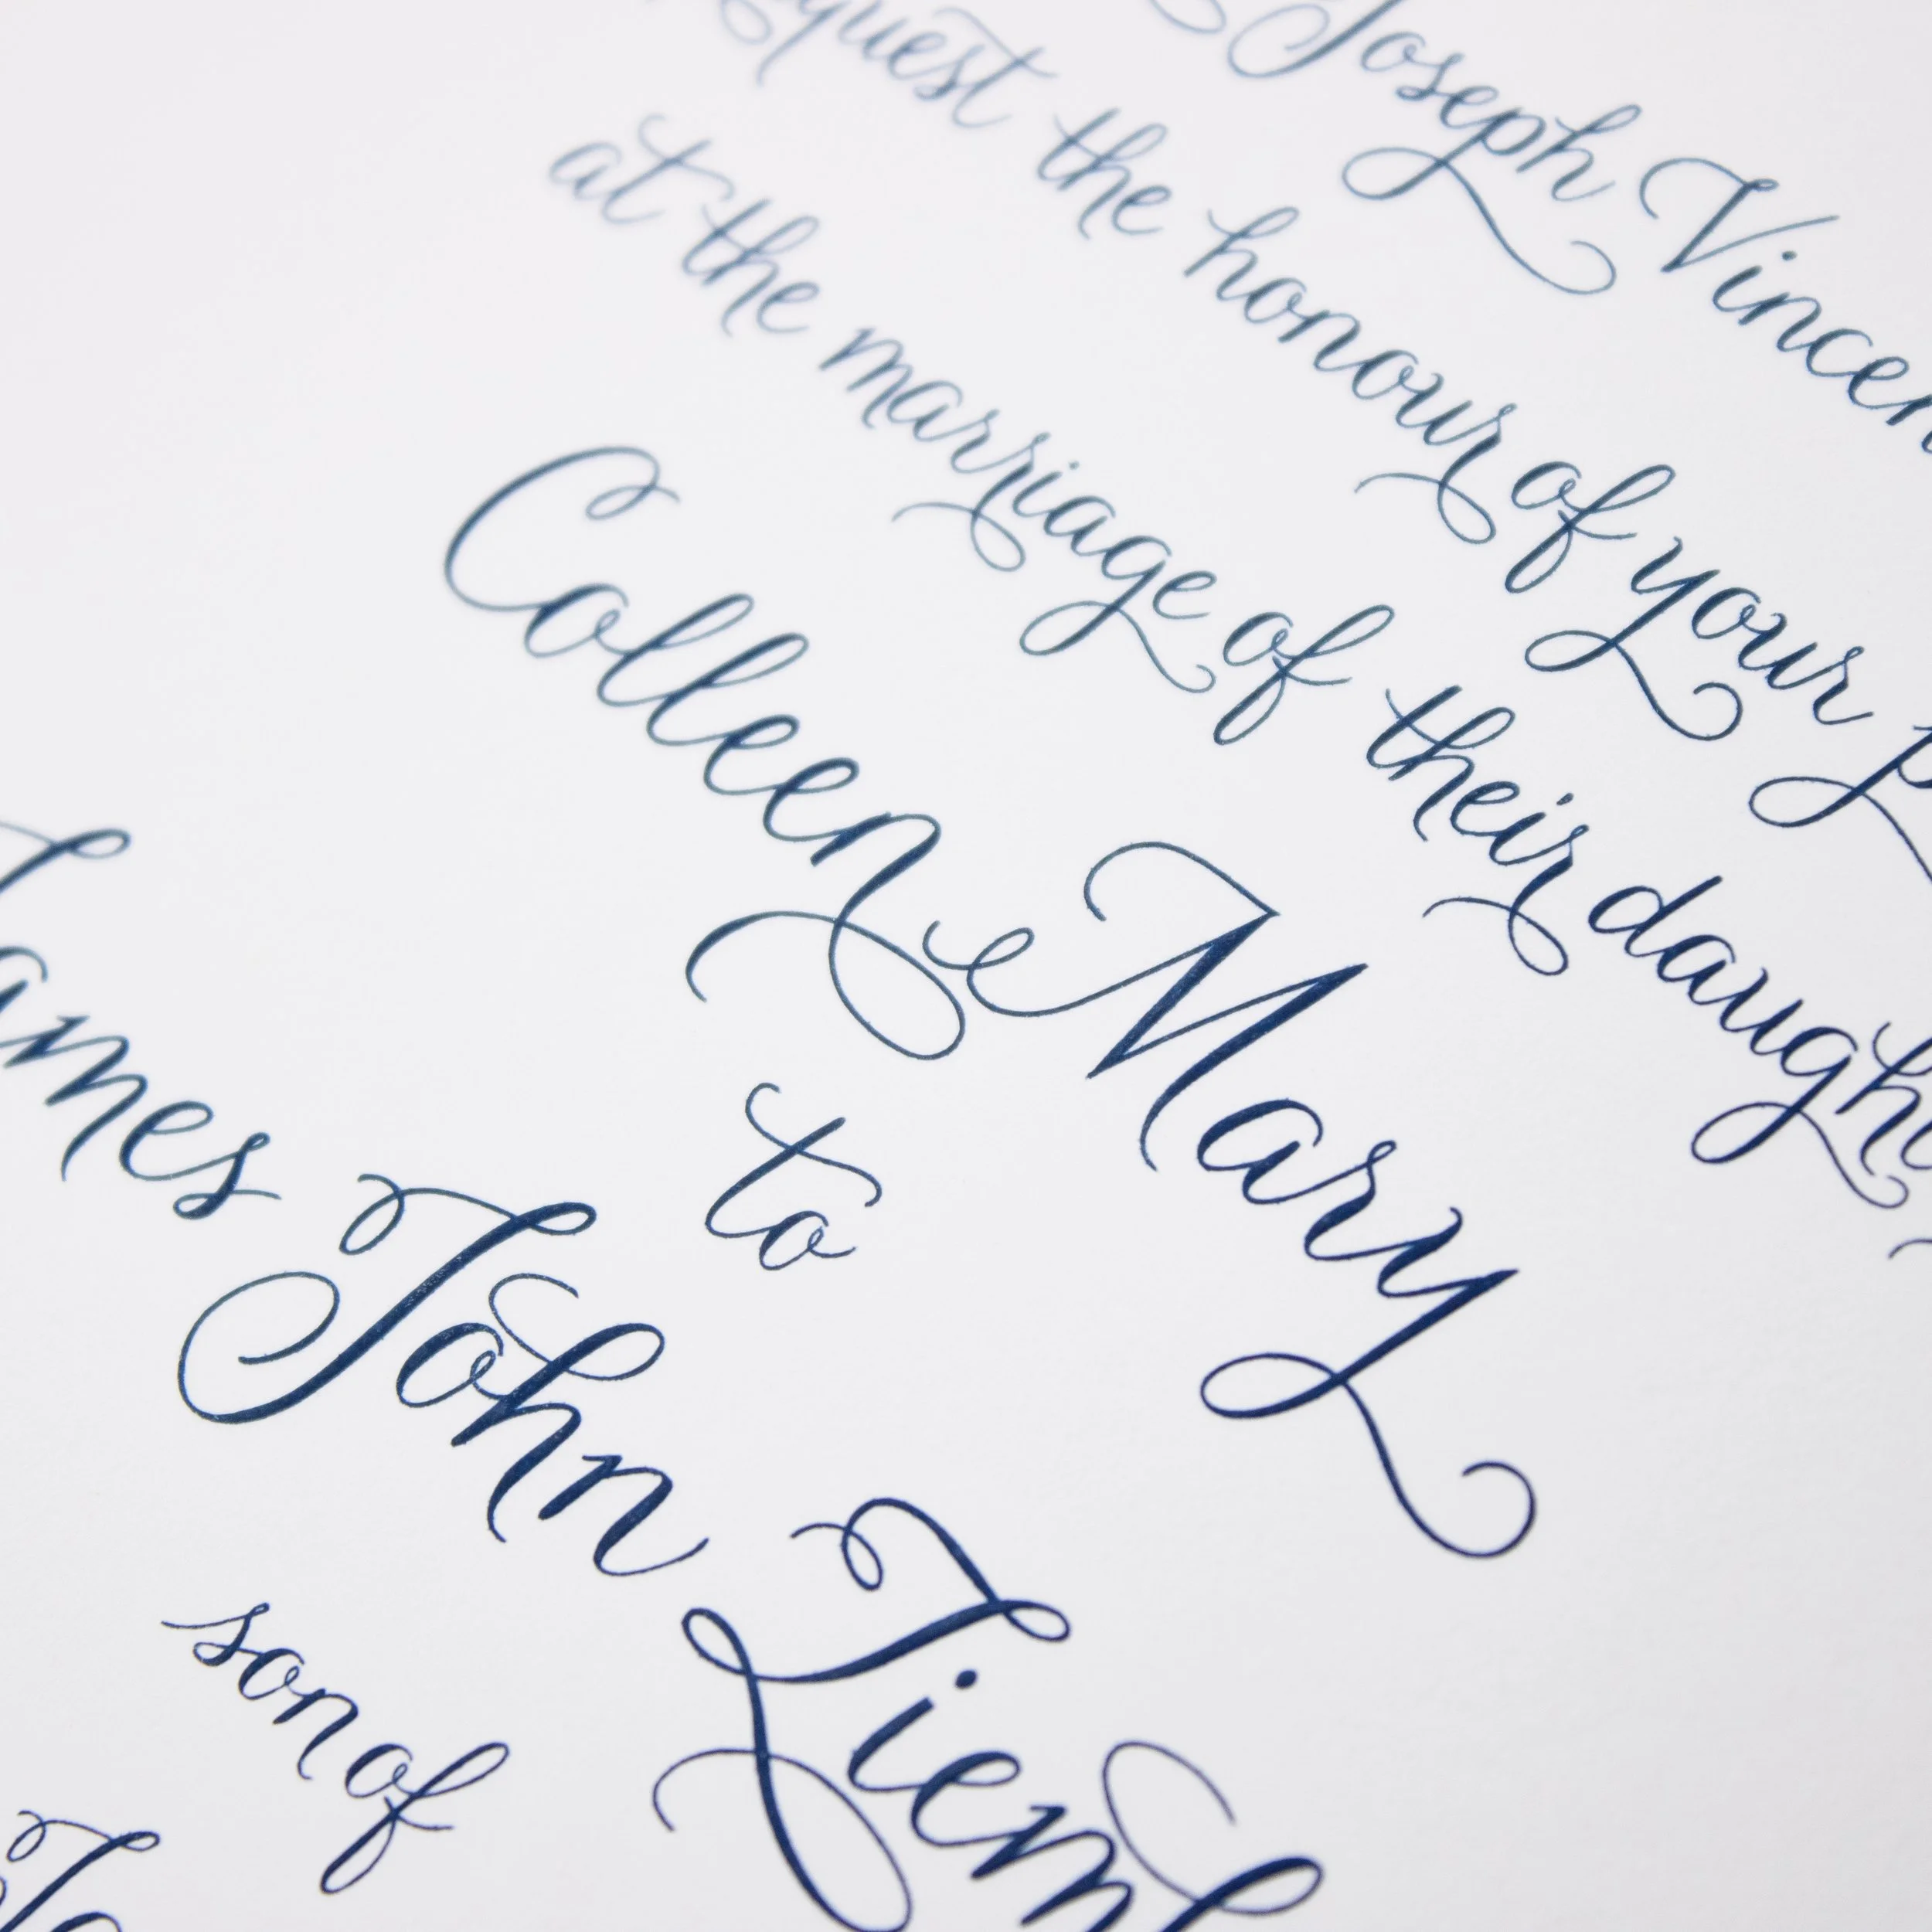 Joseph Vincen
quest the honour of your p
at the marriage of their daugh
Colleen Mary
to
James John Ziem
son of
Jo